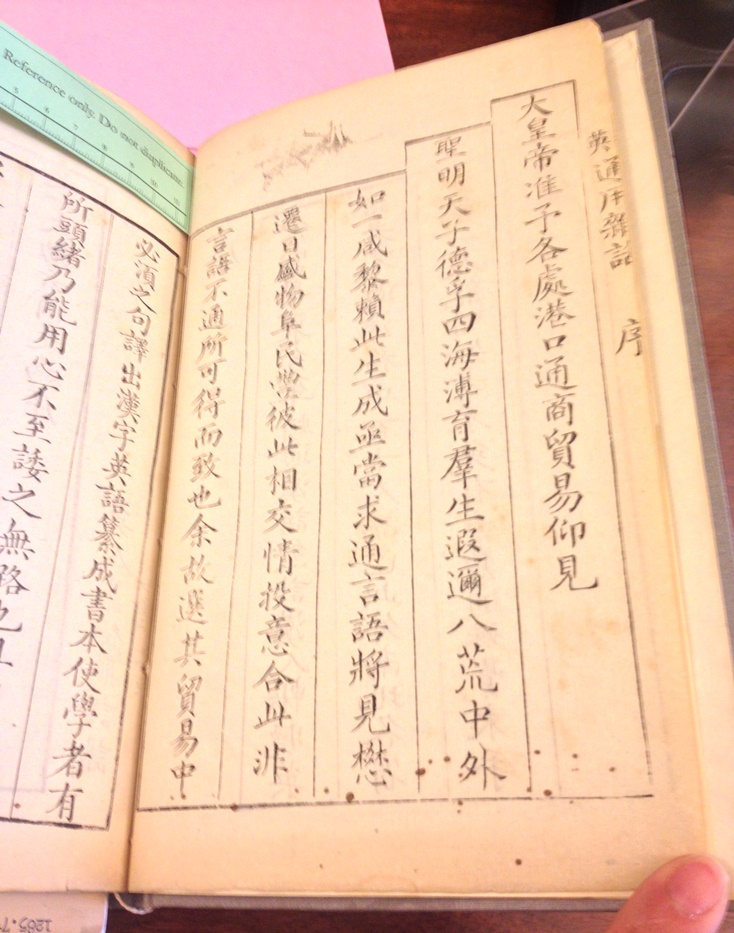 英通用雜話 序
大皇帝准予各處港口通商貿易仰見
聖明天子德孚四海溥育羣生遐邇八荒中外
如一咸黎賴此生成亟當求通言語將見懋
遷日盛物阜民豐彼此相交情投意合此非
言語不通所可得而致也余故選其貿易中
必須之句譯出漢字英語纂成書本使學者有
所頭緒乃能用心不至諉之無路也
Reference only. Do not duplicate.
5 6 7 8 9 10 11